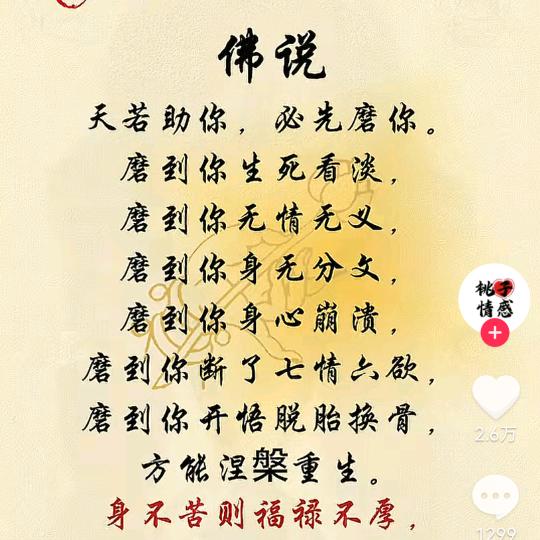 佛说
天若助你，必先磨你。
磨到你生死看淡，
磨到你无情无义，
磨到你身无分文，
磨到你身心崩溃，
磨到你断了七情六欲，
磨到你开悟脱胎换骨，
方能涅槃重生。
身不苦则福禄不厚，
桃子
情感
2.6万
1299